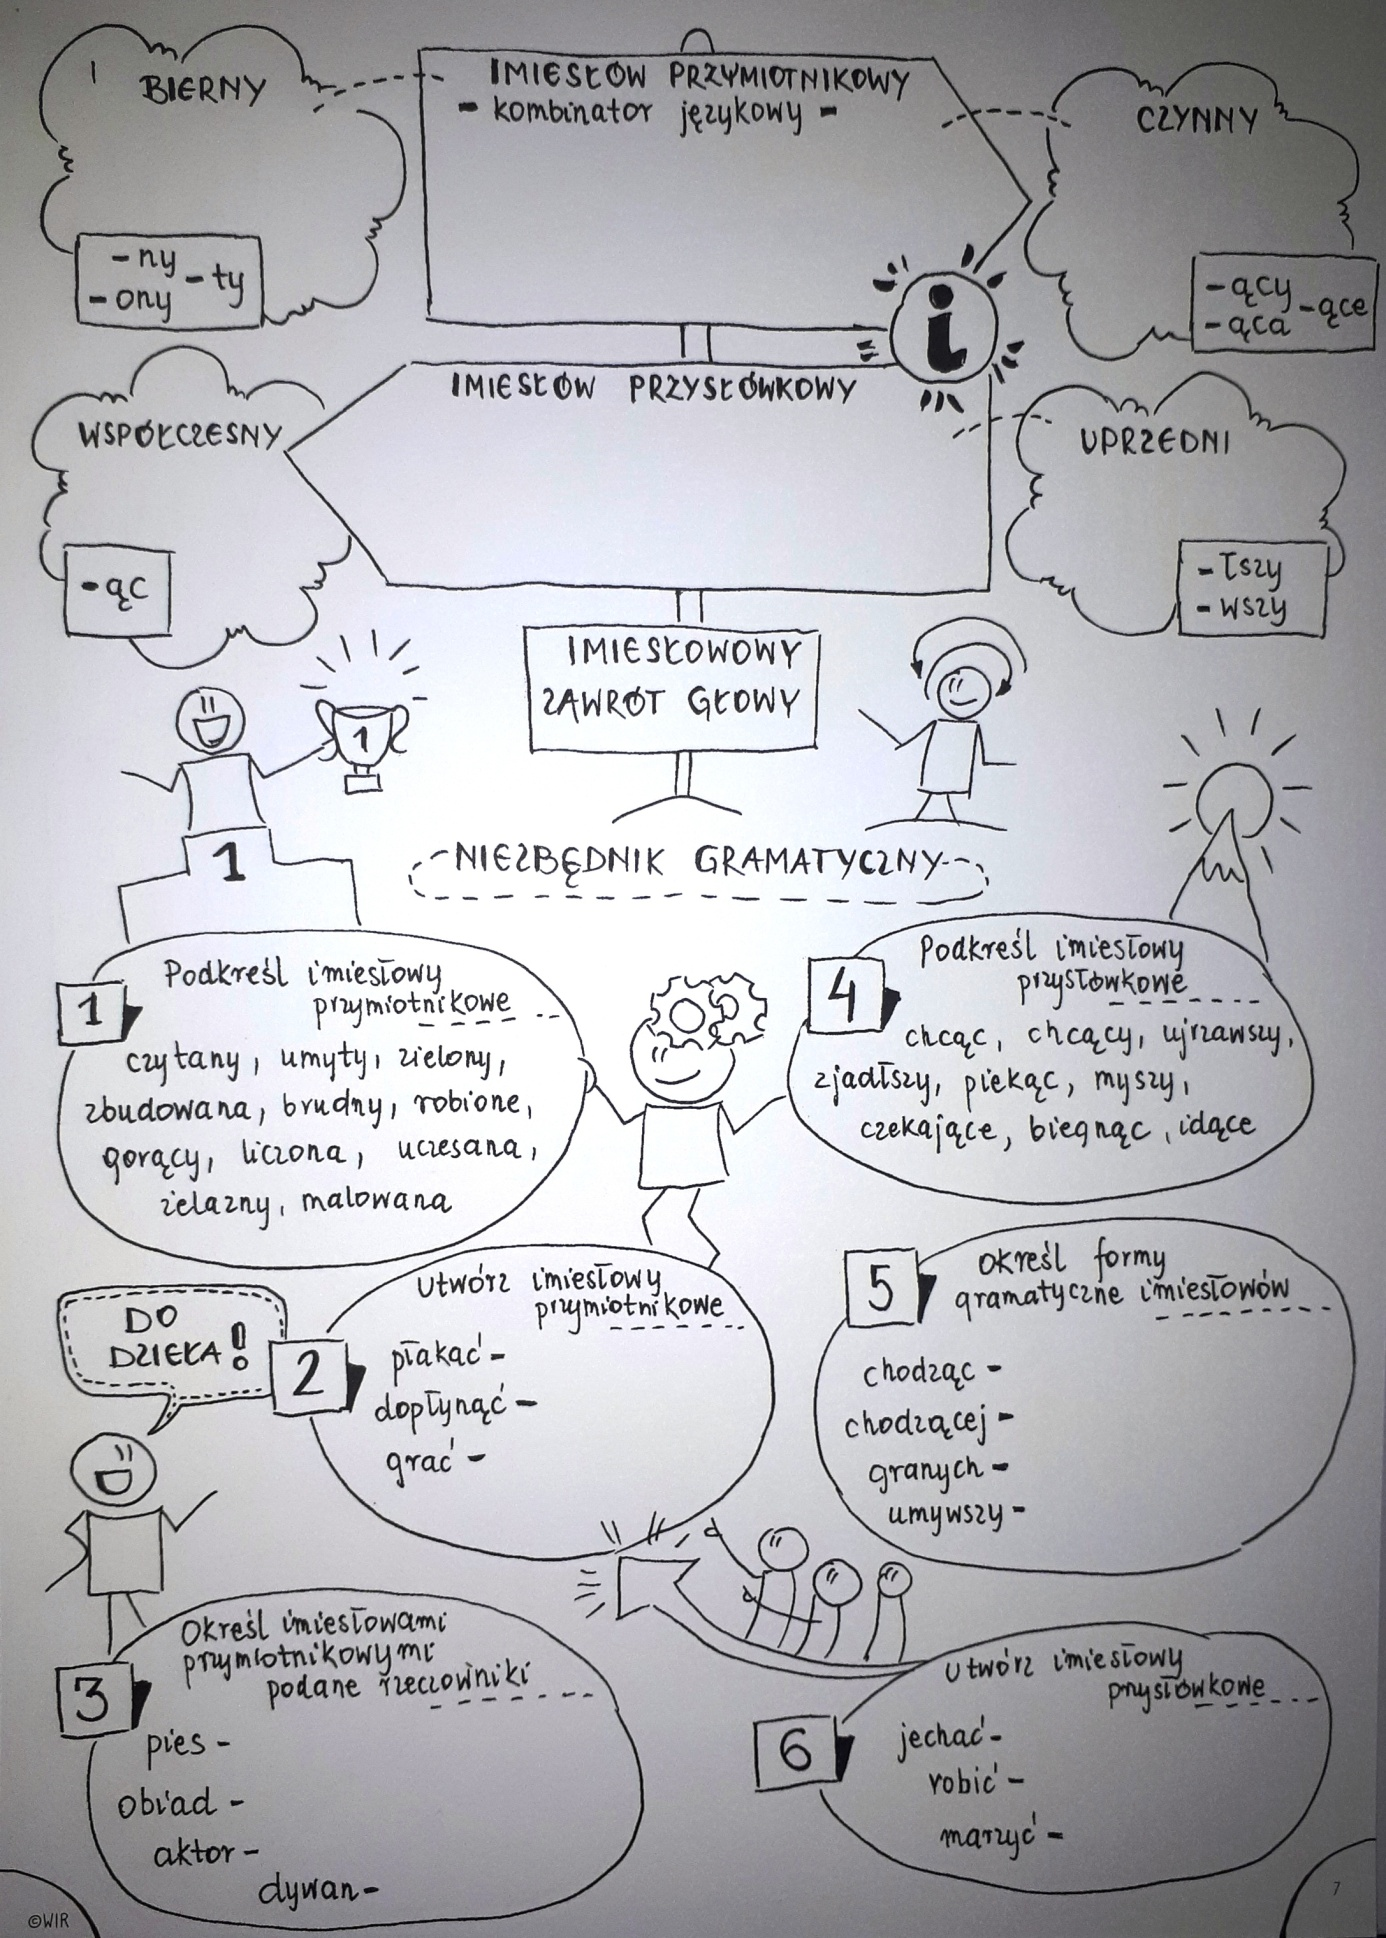 BIERNY
- ny
- ony
- ty
IMIESŁÓW PRZYMIOTNIKOWY
- kombinator językowy -
CZYNNY
- ący
- ąca
- ące
IMIESŁÓW PRZYSŁÓWKOWY
WSPÓŁCZESNY
- ąc
UPRZEDNI
- łszy
- wszy
IMIESŁOWOWY
ZAWRÓT GŁOWY
1
1
NIEZBĘDNIK GRAMATYCZNY
1
Podkreśl imiesłowy
przymiotnikowe
czytany, umyty, zielony,
zbudowana, brudny, robione,
gorący, liczona, uczesana,
żelazny, malowana
4
Podkreśl imiesłowy
przysłówkowe
chcąc, chcący, ujrzawszy,
zjadłszy, piekąc, myszy,
czekające, biegnąc, idące
DO
DZIEŁA!
2
Utwórz imiesłowy
przymiotnikowe
płakać -
dopłynąć -
grać -
5
Określ formy
gramatyczne imiesłowów
chodząc -
chodzącej -
granych -
umywszy -
3
Określ imiesłowami
przymiotnikowymi
podane rzeczowniki
pies -
obiad -
aktor -
dywan -
6
Utwórz imiesłowy
przysłówkowe
jechać -
robić -
marzyć -
©WIR
7